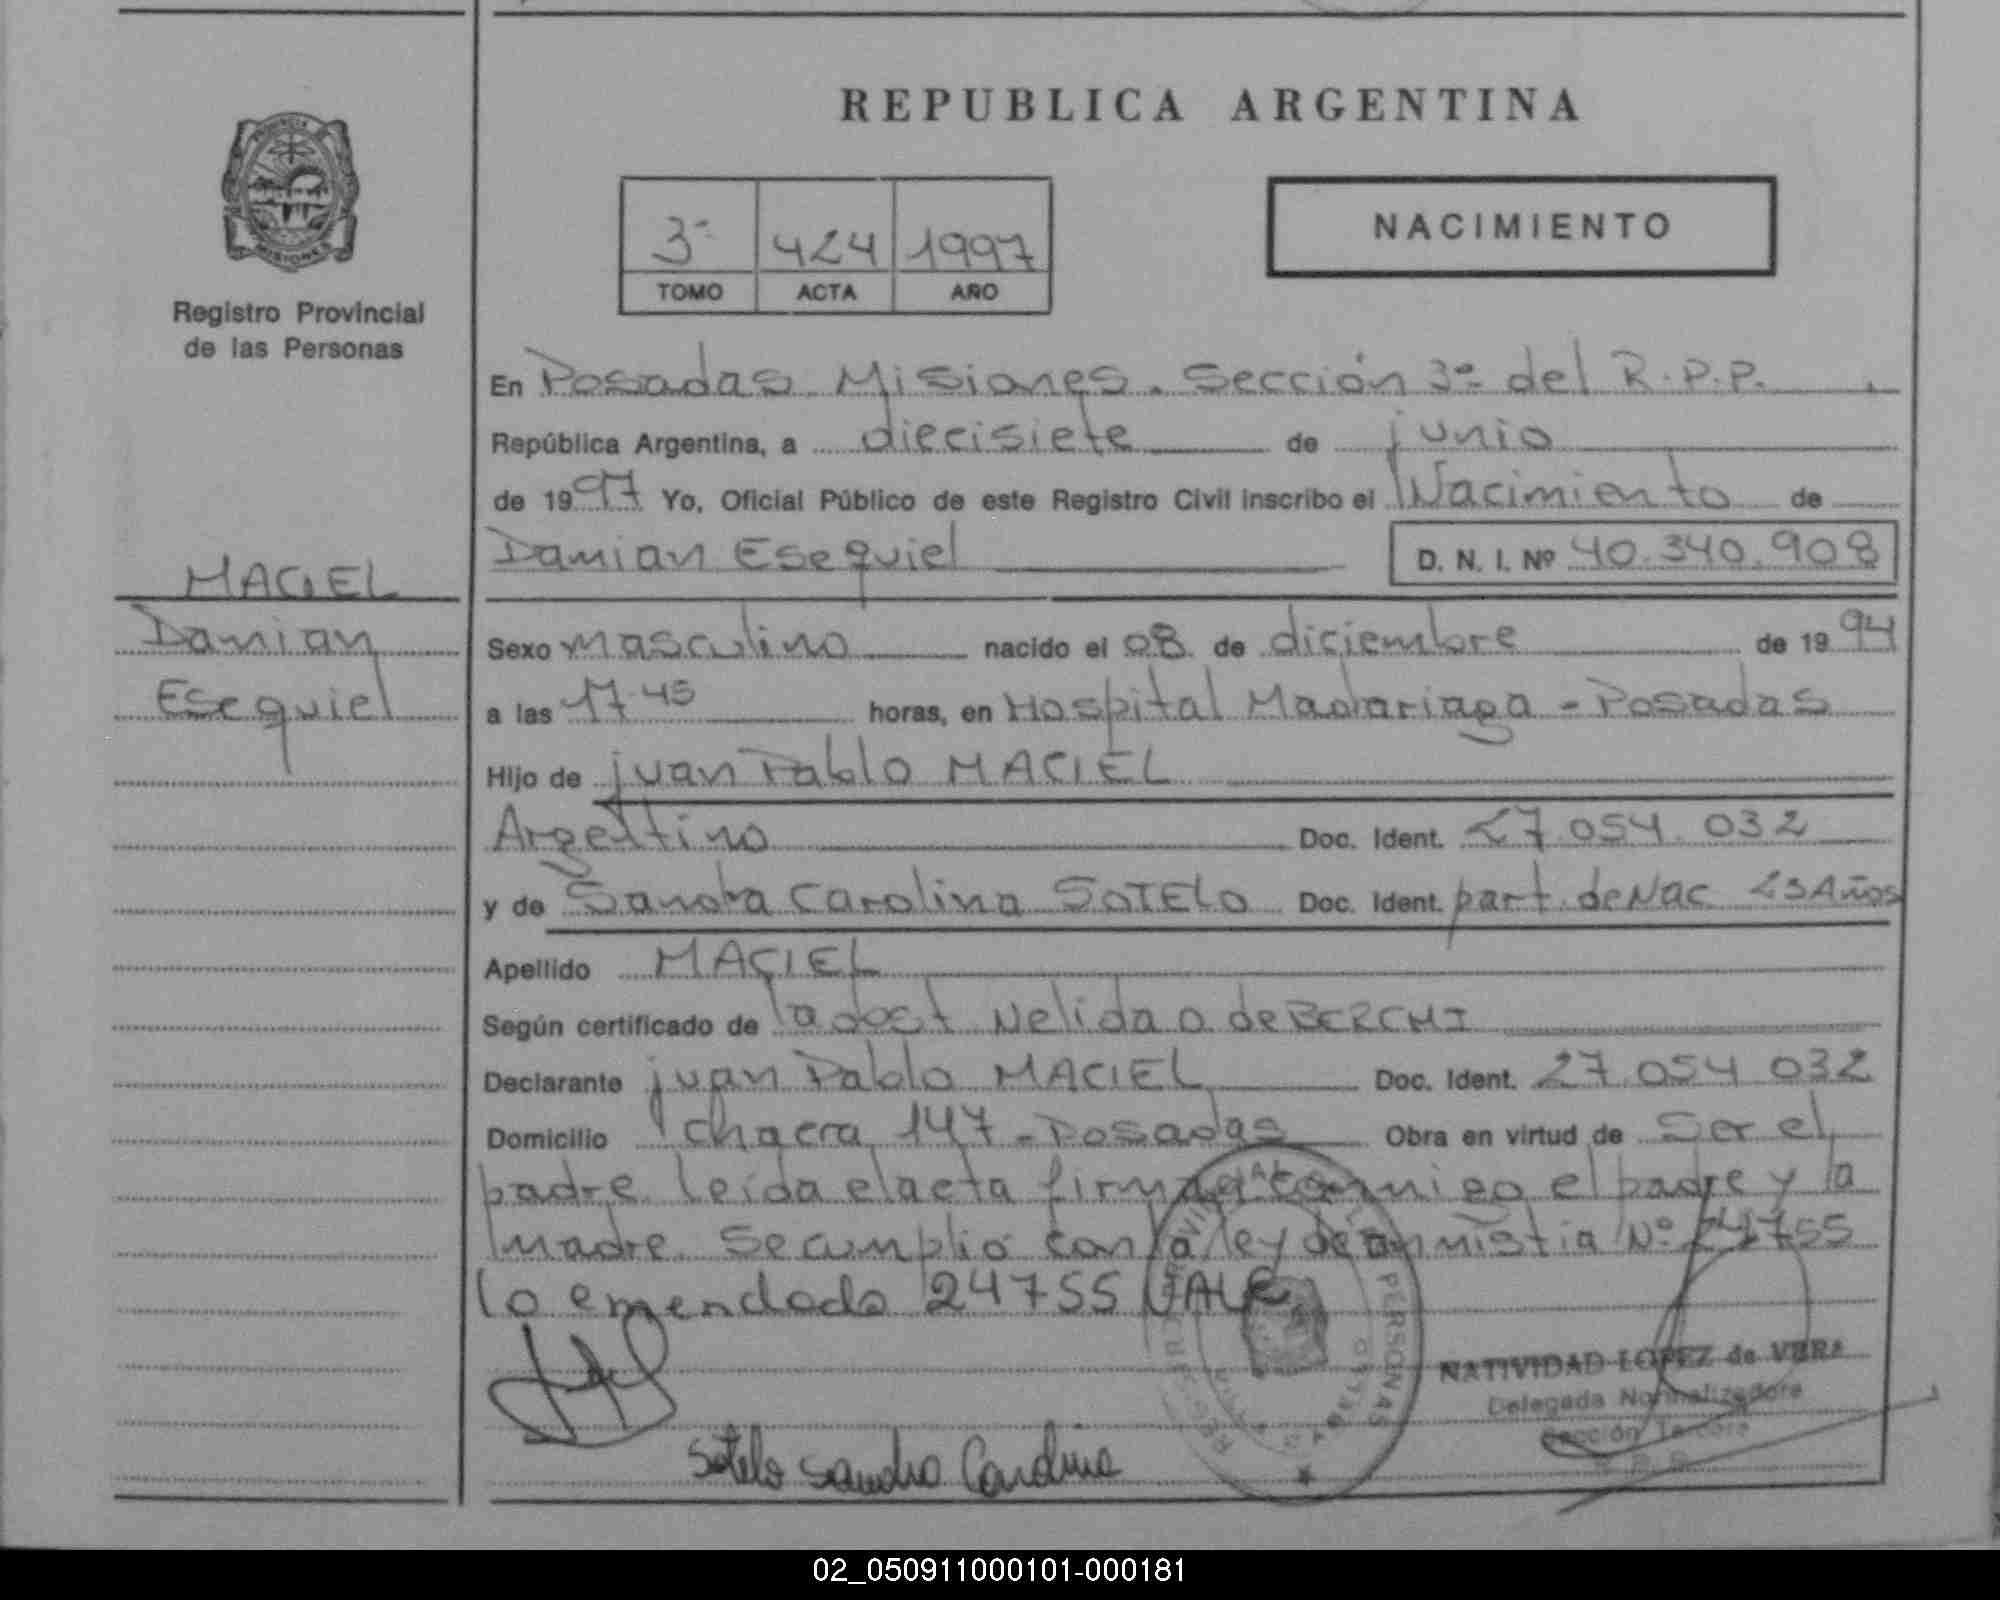 REPUBLICA ARGENTINA
PROVINCIA
MISIONES
Registro Provincial
de las Personas
3ª 424 1997
TOMO ACTA AÑO
NACIMIENTO
En Posadas Misiones. Sección 3ª del R.P.P.
República Argentina, a diecisiete de junio
de 1997 Yo, Oficial Público de este Registro Civil inscribo el Nacimiento de
Damian Esequiel D. N. I. Nº 40.340.908
MACIEL
Damian
Esequiel
Sexo masculino nacido el 08 de diciembre de 1994
a las 17.45 horas, en Hospital Madariaga - Posadas
Hijo de juan Pablo MACIEL
Argentino Doc. Ident. 27.054.032
y de Sandra Carolina SOTELO Doc. Ident. part. de Nac 23 Años
Apellido MACIEL
Según certificado de la obst Nelida O. de
Declarante juan Pablo MACIEL Doc. Ident. 27.054 032
Domicilio chacra 147 - Posadas Obra en virtud de Ser el
padre leida el acta firman conmigo el padre y la
madre. Se cumplió con la ley de amnistia Nº 24755
lo emendado 24755 VALE
NATIVIDAD LOPEZ de VERA
Delegada Normalizadora
Sección Tercera
Sotelo Sandra Carolina
PERSONAS
02_050911000101-000181